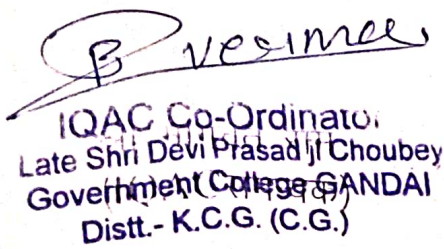 B Verma
IQAC Co-Ordinator
Late Shri Devi Prasad ji Choubey
Government College GANDAI
Distt.- K.C.G. (C.G.)